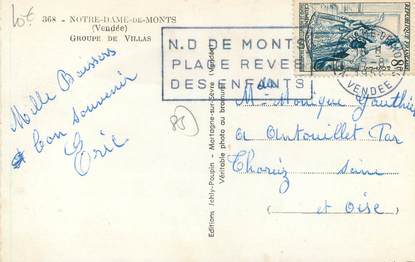 lot
368 - NOTRE-DAME-DE-MONTS
(Vendée)
GROUPE DE VILLAS
N.D DE MONTS
PLAGE REVEE
DES ENFANTS
VENDEE
Mille Baisers
et bon souvenir
Eric
85
Editions Jehly-Poupin - Mortagne-sur-Sèvre (Vendée)
Véritable photo au bromure
Monique Gauthier
a Antouillet Par
Thoiry Seine
et Oise